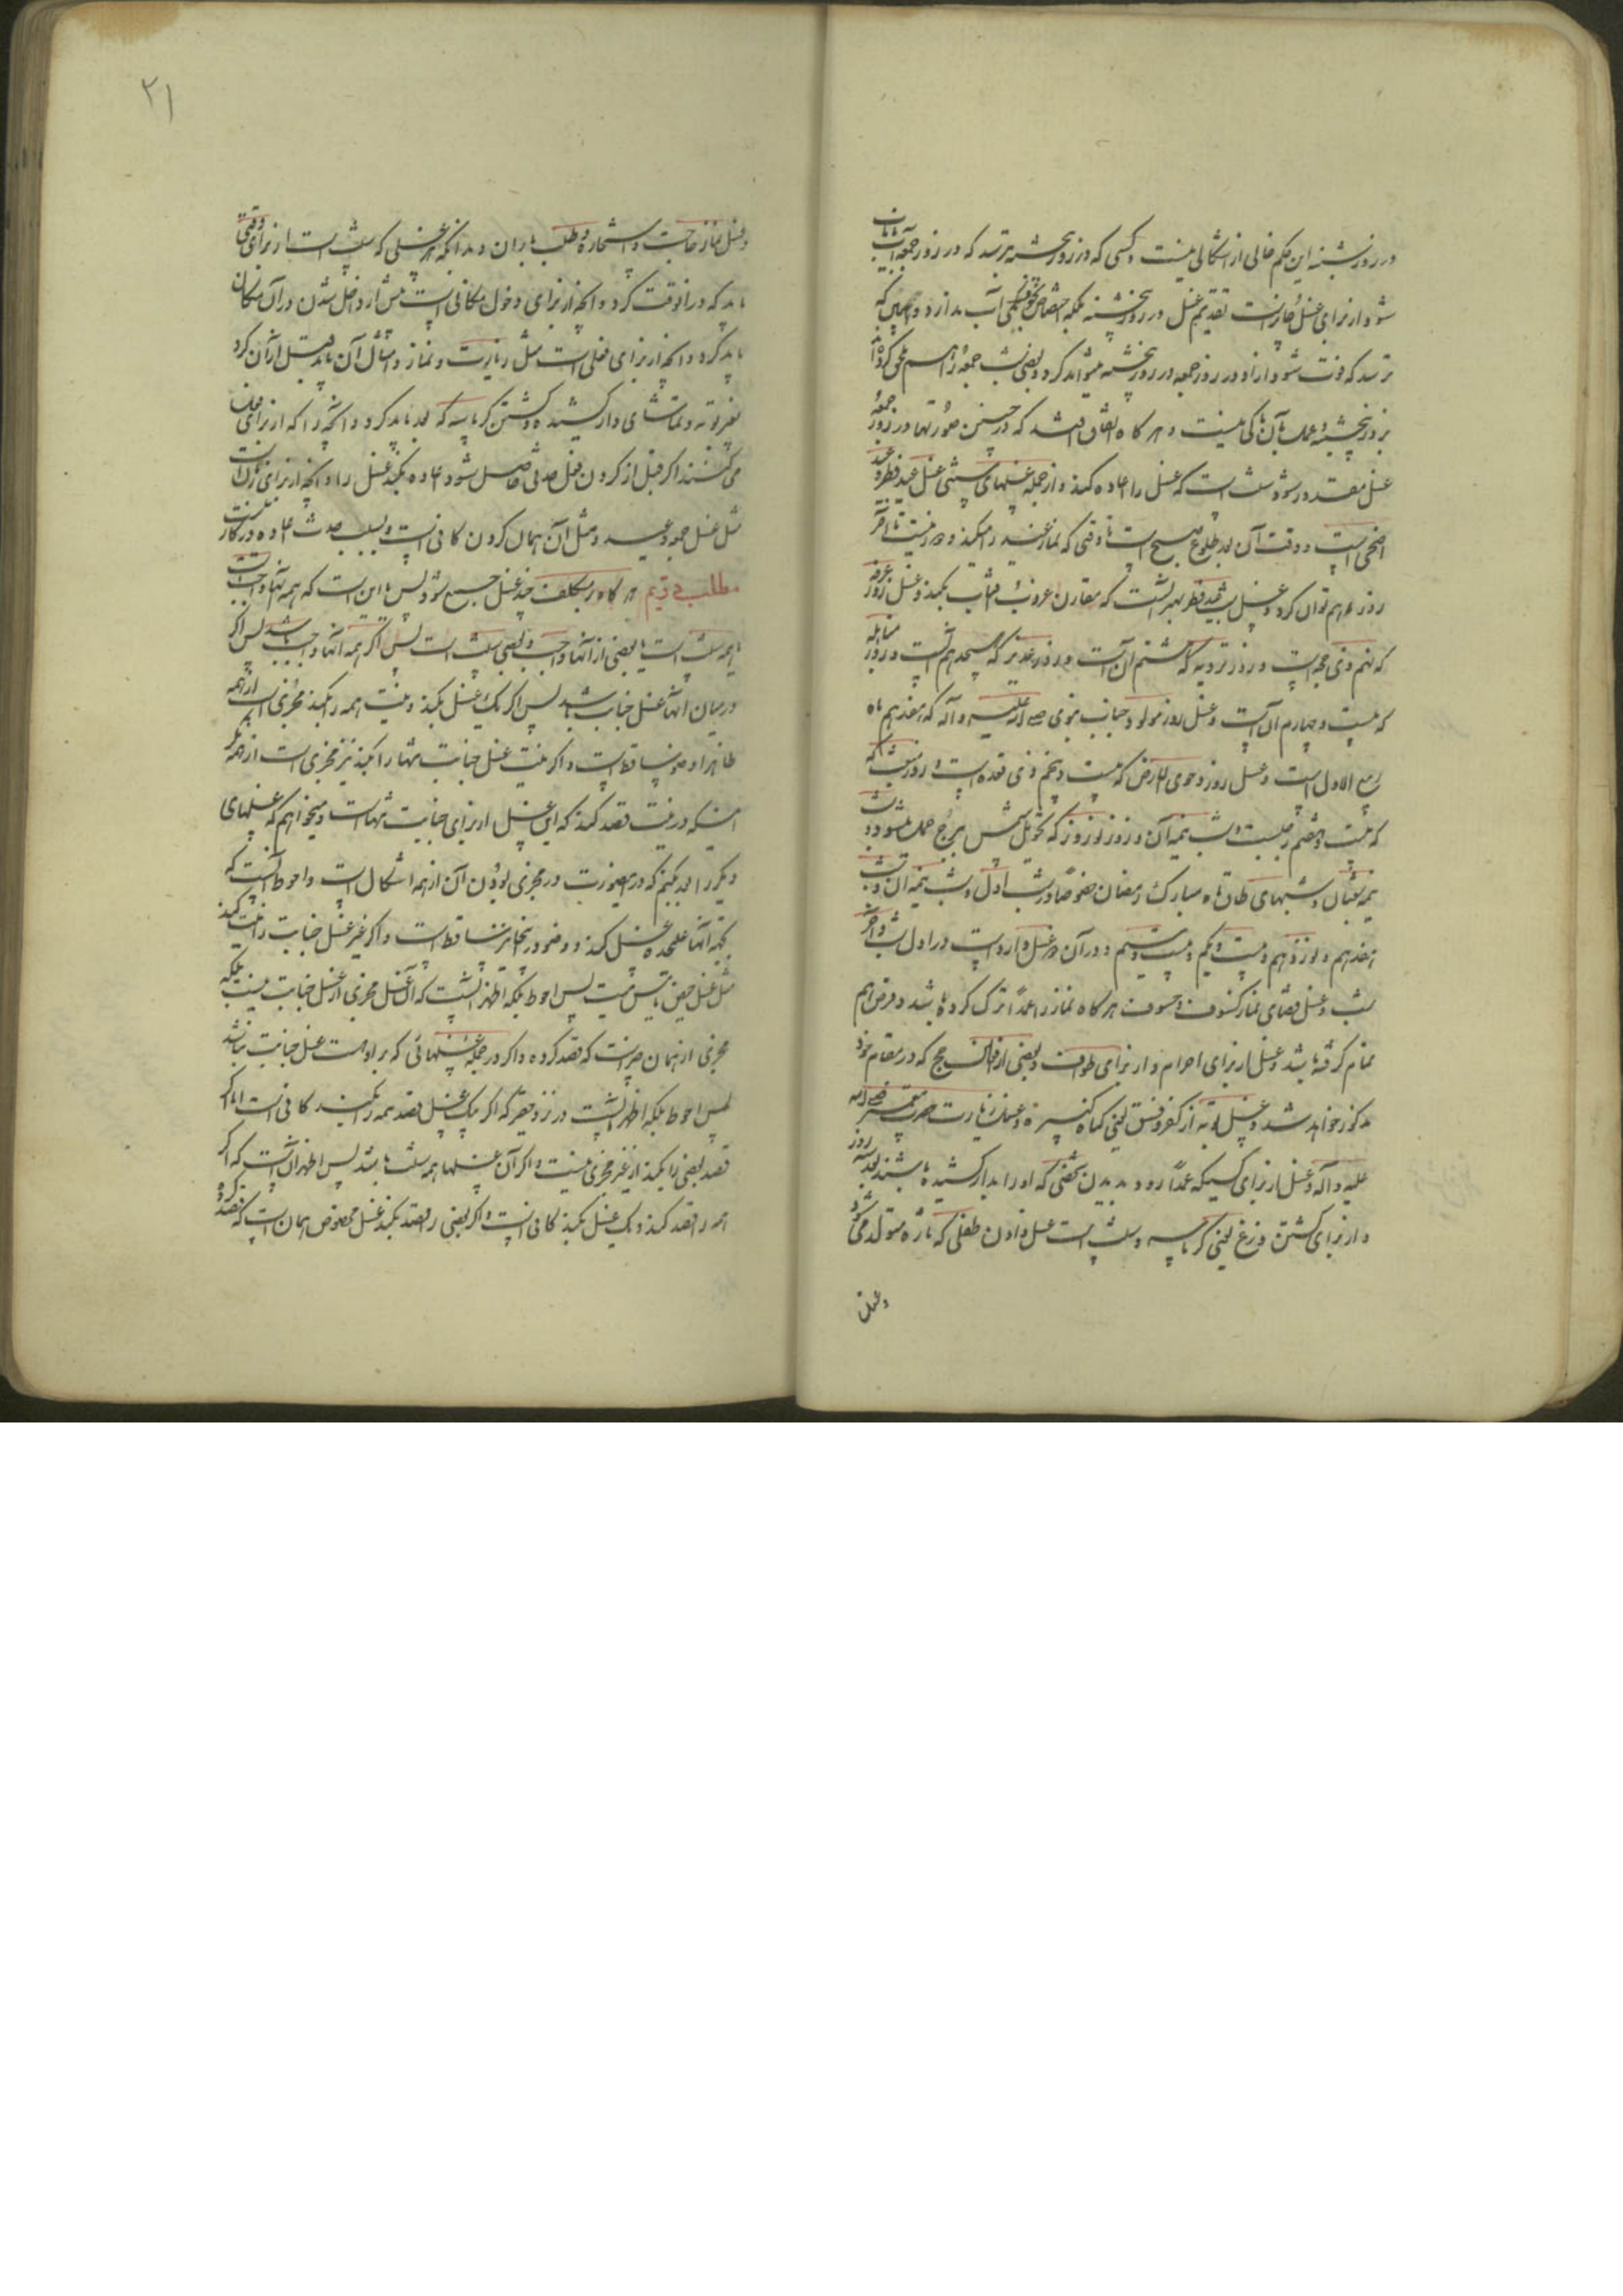 در روز شنبه این حکم خالی از اشکالی نیست و کسی که در روز پنجشنبه بترسد که در روز جمعه آب نایاب
شود از برای غسل جایز است تقدیم غسل در روز پنجشنبه بلکه اختصاص بخوف کمی آب ندارد و همین که
ترسد که فوت شود از او در روز جمعه در روز پنجشنبه میتواند کرد و بعضی شب جمعه را هم ملحق کرده‌اند
بروز پنجشنبه و عمل بآن باکی نیست و هر گاه اتفاق افتد که در چنین صورتها در روز جمعه
غسل مقدور شود سنت است که غسل را اعاده کند و از جمله غسلهای سنتی غسل عید فطر و عید
اضحی است و وقت آن بعد طلوع صبح است تا وقتی که نماز عید را میکند و دور نیست تا آخر
روز هم توان کرد و غسل شب عید فطر بهتر آنست که مقارن غروب آفتاب بکند و غسل روز عرفه
که نهم ذی حجه است و روز ترویه که هشتم آن است و روز غدیر که هیجدهم آنست و روز مباهله
که بیست و چهارم آن است و غسل روز مولود جناب نبوی صلی الله علیه و آله که هفدهم ماه
ربیع الاول است و غسل روز دحوی الارض که بیست و پنجم ذی قعده است و روز مبعث که
که بیست و هفتم رجبست و شب نیمه آن و روز نوروز که تحویل شمس ببرج حمل میشود و شب
نیمه شعبان و شبهای طاق ماه مبارک رمضان خصوصًا در شب اول و شب نیمه آن و شب
هفدهم و نوزدهم و بیست و یکم و بیست و سیم و در آن دو غسل وارد است در اول شب و آخر
شب و غسل قضای نماز کسوف و خسوف هر گاه نماز را عمدًا ترک کرده باشد و قرص هم
تمام گرفته باشد و غسل از برای احرام و از برای طواف و بعضی از افعال حج که در مقام خود
مذکور خواهد شد و غسل توبه از کفر و فسق یعنی گناه کبیره و غسل زیارت حضرت پیغمبر صلی الله
علیه و آله و غسل از برای کسیکه عمدًا رود بدیدن شخصی که او را بدار کشیده باشند بعد سه روز
و از برای کشتن وزغ یعنی کرباسه و سنت است غسل دادن طفلی که تازه متولد می شود
و غسل
۲۱
و غسل نماز حاجت و استخاره و طلب باران و بدانکه هر غسلی که سنت است از برای وقتی
باید که در آنوقت کرد و آنچه از برای دخول مکانی است پیش از داخل شدن در آن مکان
باید کرد و آنچه از برای فعلی است مثل زیارت و نماز و امثال آن باید قبل از آن کرد
بغیر توبه و تماشای دار کشیده و کشتن کرباسه که بعد باید کرد و آنچه را که از برای فعل
می کنند اگر قبل از کردن فعل حدثی حاصل شود اعاده بکند غسل را و آنچه از برای زمان است
مثل غسل جمعه و عید و مثل آن همان کردن کافی است و بسبب حدث اعاده در کار نیست
مطلب دویم هر گاه بر مکلف چند غسل جمع شود پس یا این است که همه آنها واجبست
یا همه سنت است یا بعضی از آنها واجب و بعضی سنت است پس اگر همه آنها واجب باشد پس اگر
در میان آنها غسل جنابت باشد پس اگر یک غسل بکند و نیت همه را بکند مجزی است از همه
ظاهرا و وضو ساقط است و اگر نیت غسل جنابت تنها را بکند نیز مجزی است از همه مگر
اینکه در نیت قصد کند که این غسل از برای جنابت تنهاست و میخواهم که غسلهای
دیگر را بعد بکنم که در اینصورت در مجزی بودن آن از همه اشکال است و احوط آنست که
بجهت آنها علیحده غسل کند و وضو در اینجا نیز ساقط است و اگر غیر غسل جنابت را نیت کند
مثل غسل حیض یا مس میت پس احوط بلکه اظهر آنست که آن غسل مجزی از غسل جنابت نیست بلکه
مجزی از همان حدثست که قصد کرده و اگر در جمله غسلهائی که بر او است غسل جنابت نباشد
پس احوط بلکه اظهر آنست در نزد حقیر که اگر یک غسل بقصد همه را بکند کافی است اما اگر
قصد بعضی را بکند از غیر مجزی نیست و اگر آن غسلها همه سنت باشد پس اظهر آن است که اگر
همه را قصد کند و یک غسل بکند کافی است و اگر بعضی را قصد بکند غسل مخصوص همان است که قصد کرده